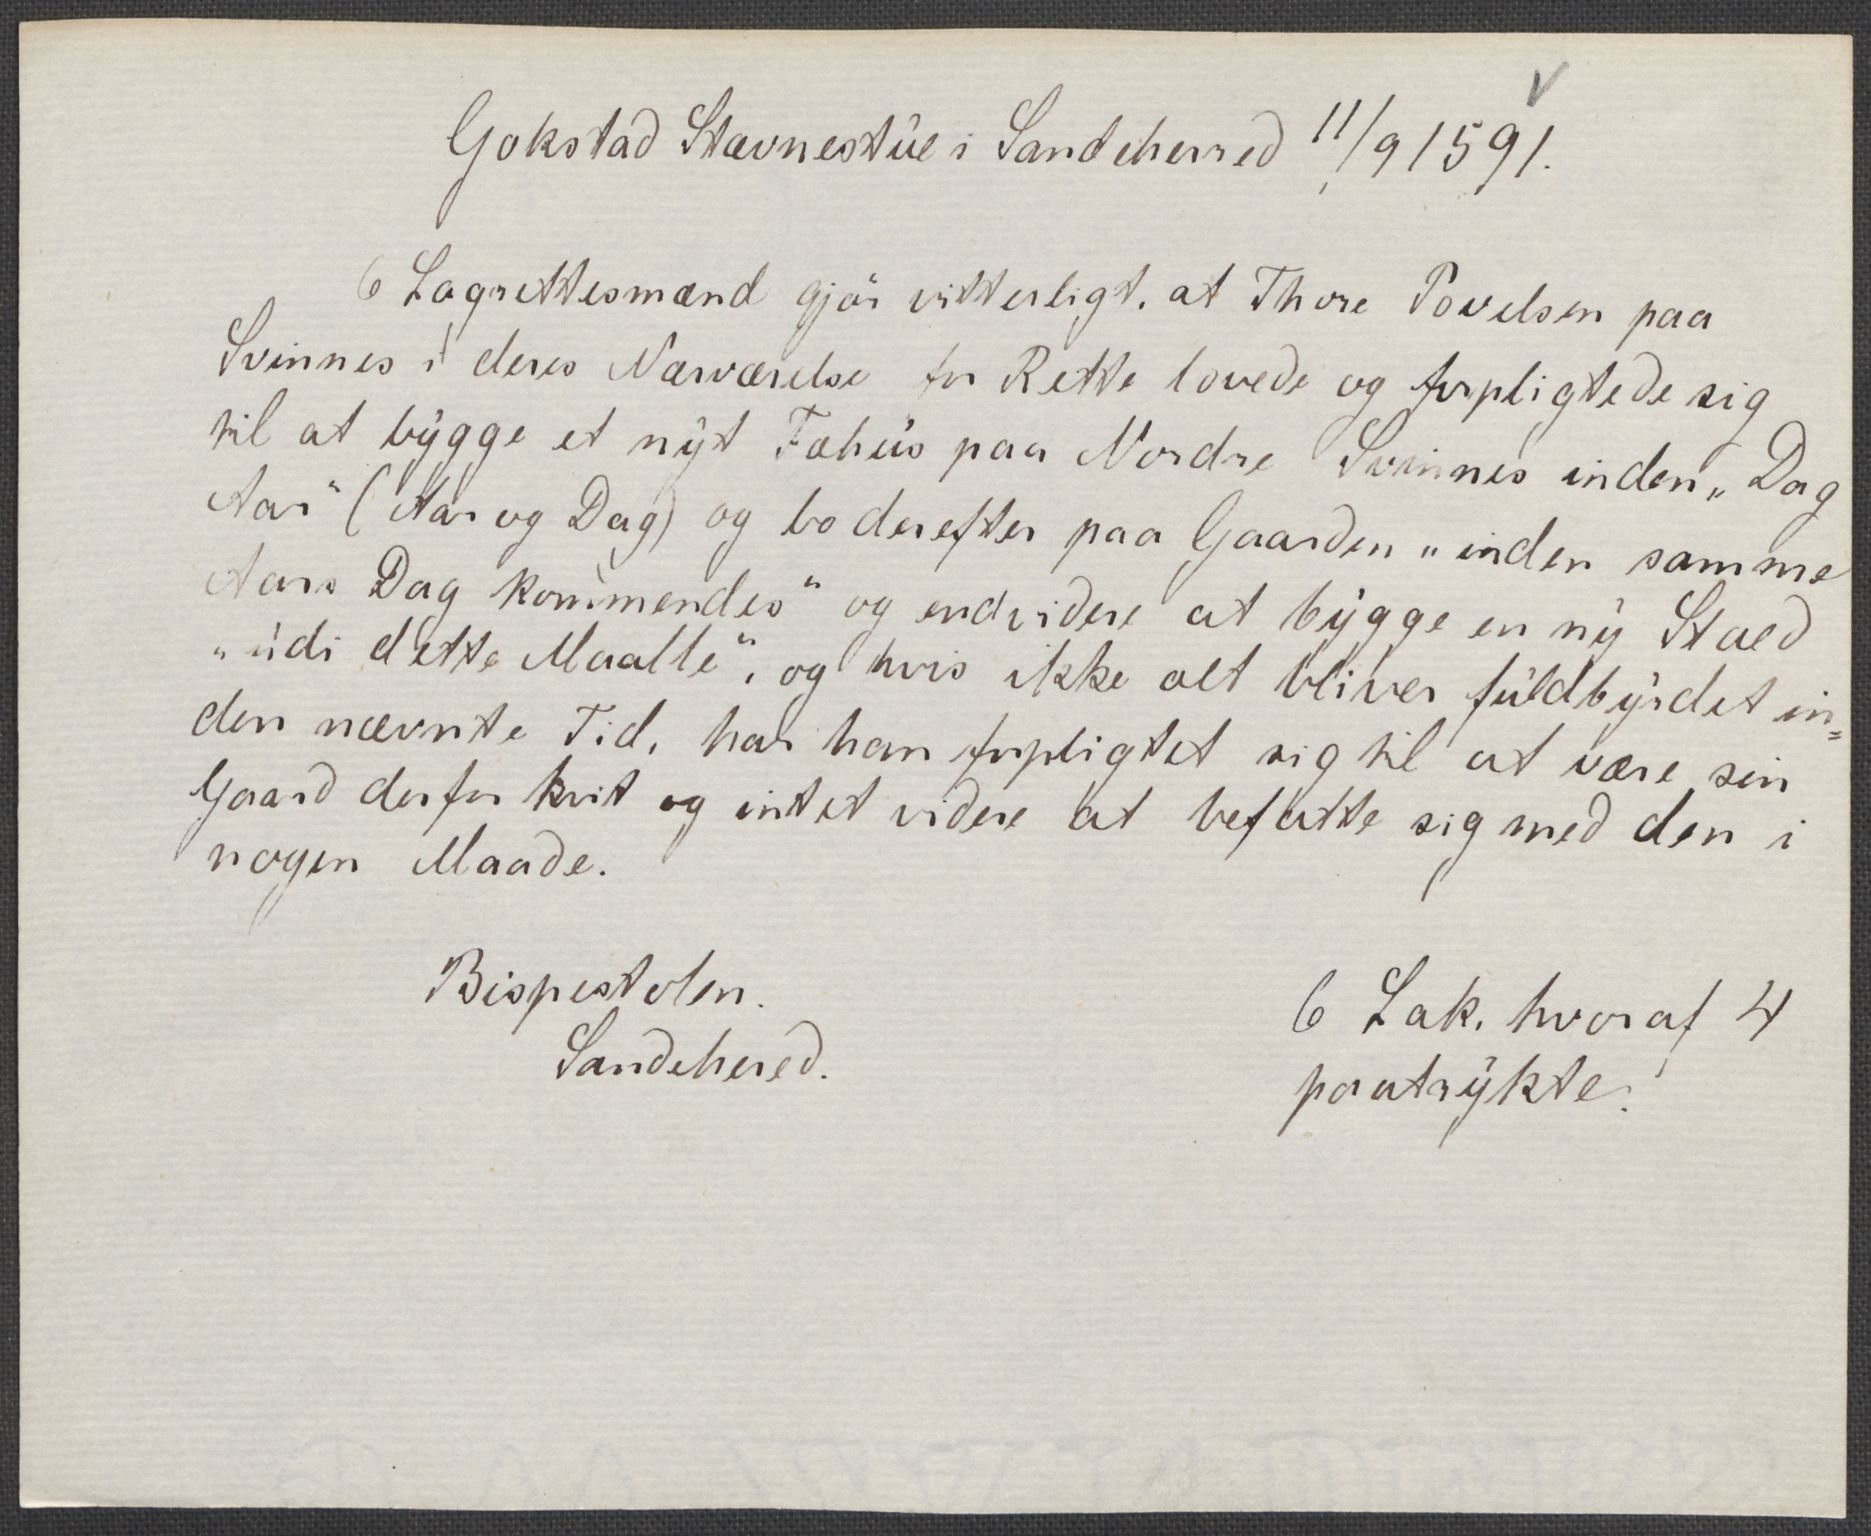 Gokstad Stævnestue i Sandeherred 11/9 1591.
6 Lagrettesmænd gjør vitterligt, at Thore Povelsen paa
Svinnes i deres Nærværelse for Rette lovede og forpligtede sig
til at bygge et nyt Fæhus paa Nordre Svinnes inden „Dag
Aar“ (Aar og Dag) og bo derefter paa Gaarden „inden samme
Aars Dag kommendes“ og endvidere at bygge en ny Staed
„udi dette Maalle“, og hvis ikke alt bliver fuldbyrdet in=
den nævnte Tid, har han forpligtet sig til at være sin
Gaard derfor kvit og intet videre at befatte sig med den i
nogen Maade.
Bispestolen.
Sandehered.
6 Lak. hvoraf 4
paatrykte.